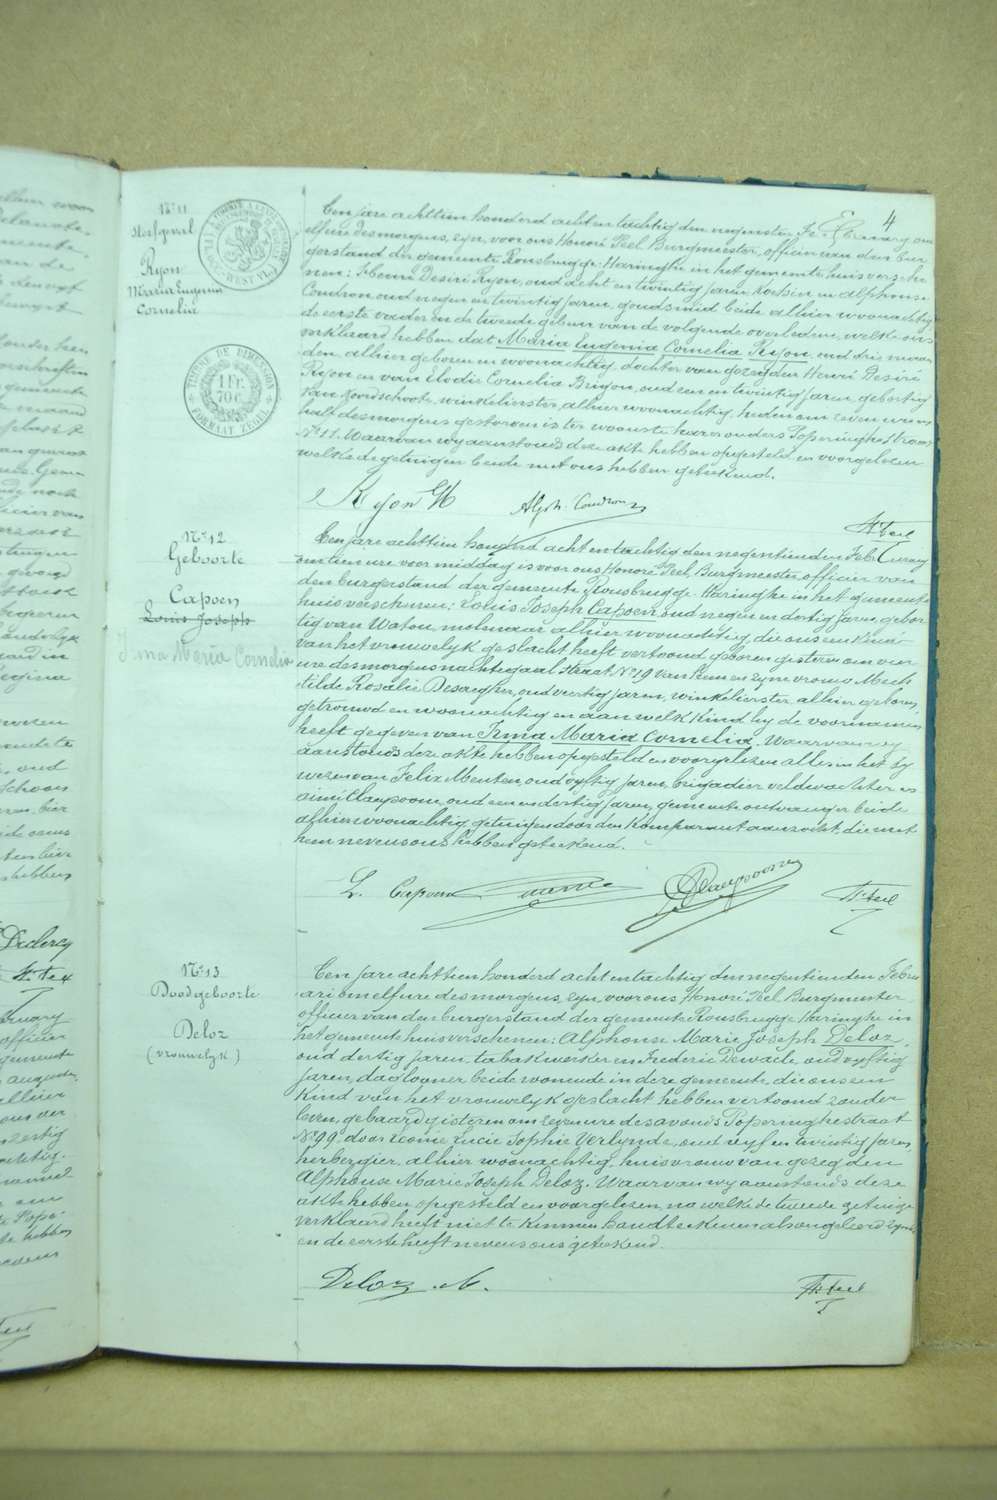 4
N° 11
Sterfgeval
Ryon
Maria Eugenia
Cornelia
TIMBRE DE DIMENSION
1 Fr.
70 c.
FORMAAT ZEGEL
Een jare achttien honderd acht en tachtig den negensten Februarÿ om
elf ure des morgens, zyn, voor ons Honoré Peel, Burgmeester, officier van den bur
gerstand der gemeente Rousbrugge-Haringhe in het gemeentehuis verschee
nen: Désiré Ryon, oud acht en twintig jaren, en Alphonse
Coudron oud negen en twintig jaren, goudsmid beide alhier woonachtig
de eerste vader en de tweede gebuur van de volgende overledene, welke ons
verklaard hebben dat Maria Eugenia Cornelia Ryon, oud drie maan
den, alhier geboren en woonachtig, dochter van gezegden Henri Desiré
Ryon en van Elodie Cornelia Brÿon, oud een en twintig jaren, geboortig
van Noordschoote, winkelierster, alhier woonachtig, heden om zeven uren
half des morgens gestorven is ter woonste harer ouders Poperinghestraat
N° 11. Waarvan wy aanstonds deze akte hebben opgesteld en voorgelezen
welke de getuigen beide met ons hebben geteekend.
Ryon H Alph. Coudron H. Peel
N° 12
Geboorte
Capoen
Louis Joseph
Irma Maria Cornelia
Een jare achttien honderd acht en tachtig den negentienden Februarÿ
om tien ure voor middag is voor ons Honoré Peel, Burgmeester, officier van
den burgerstand der gemeente Rousbrugge-Haringhe in het gemeente
huis verschenen: Louis Joseph Capoen, oud negen en dertig jaren, geboor
tig van Watou, molenaar alhier woonachtig, die ons een kind
van het vrouwelyk geslacht heeft vertoond geboren gisteren om vier
ure des morgens nachtegaal straat N° 19 van hem en zyne vrouw Mech
tilde Rosalie Desaegher, oud veertig jaren, winkelierster, alhier geboren,
getrouwd en woonachtig en aan welk kind hy de voornamen
heeft gegeven van Irma Maria Cornelia. Waarvan wy
aanstonds deze akte hebben opgesteld en voorgelezen alles in het by
wezen van Felix Menten, oud vyftig jaren, brigadier veldwachter en
Aimé Claeysoone, oud een en dertig jaren, gemeente ontvanger beide
alhier woonachtig getuigen door den komparant aanzocht, die met
hem nevens ons hebben geteekend.
L. Capoen H. Peel
N° 13
Doodgeboorte
Deloz
(vrouwelyk)
Een jare achttien honderd acht en tachtig den negentienden Febru
ari om elf ure des morgens, zyn, voor ons Honoré Peel, Burgmeester
officier van den burgerstand der gemeente Rousbrugge Haringhe in
het gemeentehuis verschenen: Alphonse Marie Joseph Deloz,
oud dertig jaren, tabakwerker en Frederic Dewaele, oud vyftig
jaren, daglooner beide wonende in deze gemeente die ons een
kind van het vrouwelyk geslacht hebben vertoond zonder
leven, gebaard gisteren om zeven ure des avonds Poperinghestraat
N° 99, door Leonie Lucie Sophie Verlynde, oud vyf en twintig jaren,
herbergier, alhier woonachtig, huisvrouw van gezegden
Alphonse Marie Joseph Deloz. Waarvan wy aanstonds deze
akte hebben opgesteld en voorgelezen, na welke de tweede getuige
verklaard heeft niet te kunnen handteekenen als ongeleerd zynde,
en de eerste heeft nevens ons geteekend.
Deloz A. H. Peel